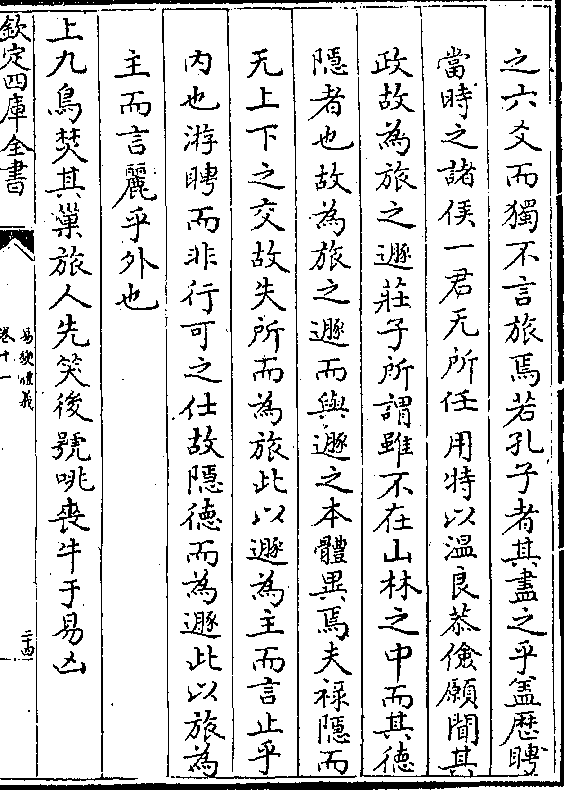 之六爻而獨不言旅焉若孔子者其盡之乎盖歴聘
當時之諸侯一君无所任用特以溫良恭儉願聞其
政故為旅之遯莊子所謂雖不在山林之中而其德
隠者也故為旅之遯而與遯之本體異焉夫祿隠而
无上下之交故失所而為旅此以遯為主而言止乎
内也游聘而非行可之仕故隠德而為遯此以旅為
主而言麗乎外也
上九鳥焚其巢旅人先笑後號咷喪牛于易凶
欽定四庫全書
易變體義
卷十一
二四